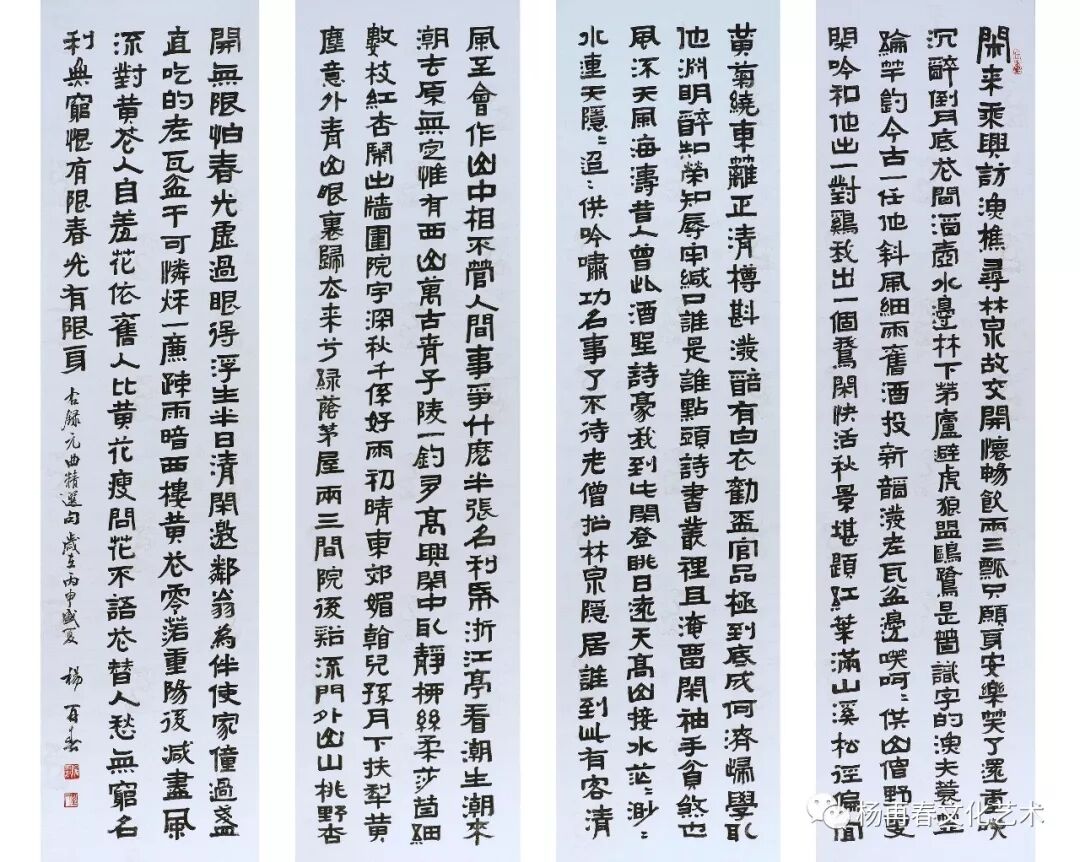 閑来乘興訪漁樵尋林泉故交開懷暢飲兩三瓢只願身安樂笑了還重笑
沉醉倒月底花間酒壺水邊林下茅廬避虎狼盟鷗鷺是箇識字的漁夫蓑笠
綸竿釣今古一任他斜風細雨舊酒投新醅潑老瓦盆邊笑呵々供山僧野叟
閑吟和他出一對鷄我出一個鵞閑快活秋景堪題紅葉滿山溪松徑偏宜
黄菊繞東籬正清樽斟潑醅有白衣勸盃官品極到底成何濟歸學取
他淵明醉知榮知辱牢緘口誰是誰點頭詩書叢裡且淹留閑袖手貧煞也
風流天風海濤昔人曾此酒聖詩豪我到此閑登眺日遠天高山接水茫々渺々
水連天隱々迢々供吟嘯功名事了不待老僧招林泉隱居誰到此有客清
風至會作山中相不管人間事爭什麽半張名利帋浙江亭看潮生潮來
潮去原無定惟有西山萬古青子陵一釣多高興閑中取靜柳絲柔莎茵細
數枝紅杏鬧出墻圍院宇深秋千係好雨初晴東郊媚看兒孫月下扶犁黄
塵意外青山眼裏歸去来兮緑蔭茅屋兩三間院後谿流門外山山桃野杏
開無限怕春光虚過眼得浮生半日清閑邀鄰翁為伴使家僮過盞
直吃的老瓦盆干可憐杯一簾疎雨暗西樓黄花零落重陽後減盡風
流對黄花人自羞花依舊人比黄花瘦問花不語花替人愁無窮名
利無窮恨有限春光有限身
右録元曲精選句歲在丙申盛夏 楊再春
杨再春文化艺术